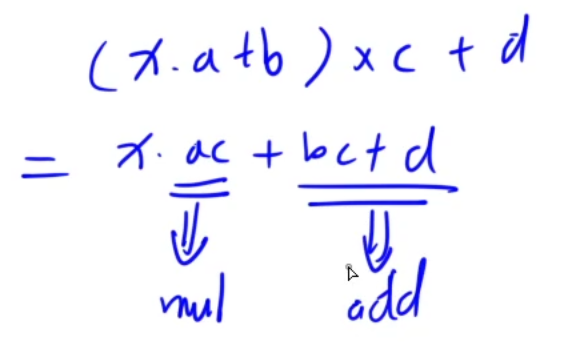 (x.a+b)×c+d
= x.ac+bc+d
mul add